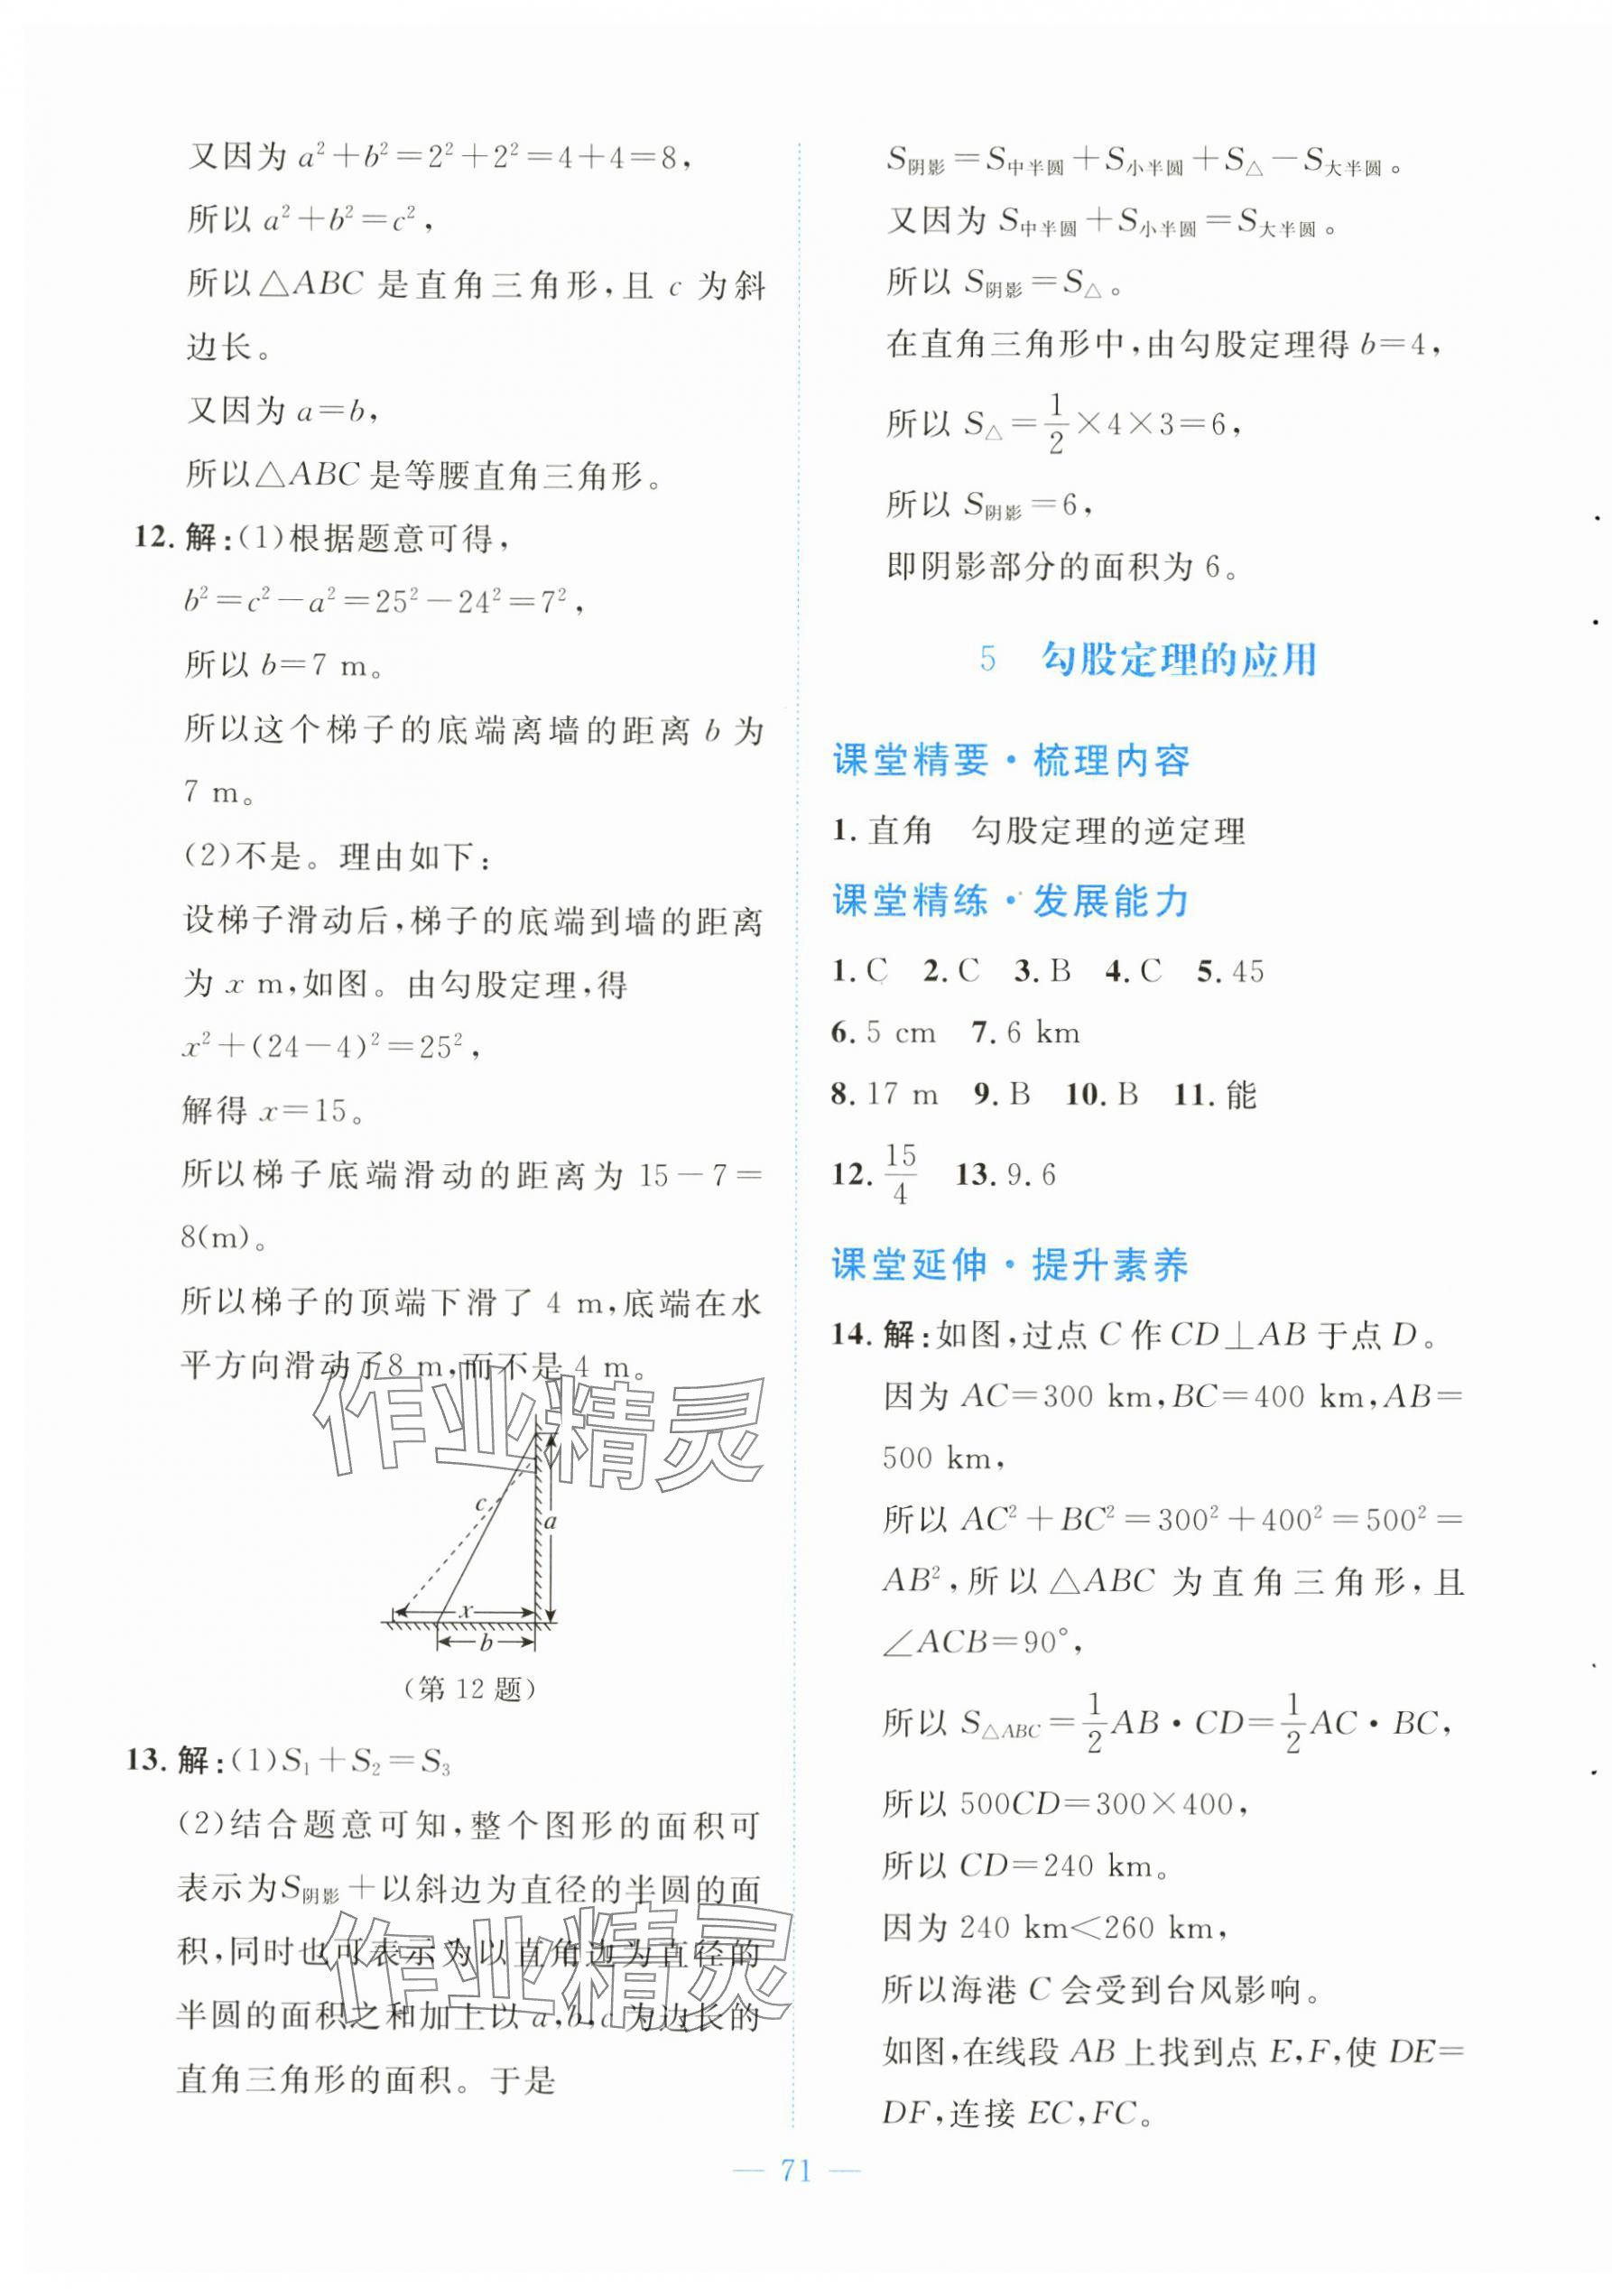 又因为 a²+b²=2²+2²=4+4=8,
所以 a²+b²=c²,
所以△ABC 是直角三角形,且 c 为斜
边长。
又因为 a=b,
所以△ABC 是等腰直角三角形。
12. 解:(1)根据题意可得,
b²=c²-a²=25²-24²=7²,
所以 b=7 m。
所以这个梯子的底端离墙的距离 b 为
7 m。
(2)不是。理由如下:
设梯子滑动后,梯子的底端到墙的距离
为 x m,如图。由勾股定理,得
x²+(24-4)²=25²,
解得 x=15。
所以梯子底端滑动的距离为 15-7=
8(m)。
所以梯子的顶端下滑了 4 m,底端在水
平方向滑动了8 m,而不是 4 m。
作业精灵
c
a
x
b
(第 12 题)
13. 解:(1)S₁+S₂=S₃
(2)结合题意可知,整个图形的面积可
表示为S阴影+以斜边为直径的半圆的面
积,同时也可表示为以直角边为直径的
半圆的面积之和加上以 a,b,c 为边长的
直角三角形的面积。于是
作业精灵
S阴影=S中半圆+S小半圆+S△-S大半圆。
又因为 S中半圆+S小半圆=S大半圆。
所以 S阴影=S△。
在直角三角形中,由勾股定理得 b=4,
所以 S△=1/2×4×3=6,
所以 S阴影=6,
即阴影部分的面积为 6。
5 勾股定理的应用
课堂精要·梳理内容
1. 直角 勾股定理的逆定理
课堂精练·发展能力
1. C 2. C 3. B 4. C 5. 45
6. 5 cm 7. 6 km
8. 17 m 9. B 10. B 11. 能
12. 15/4 13. 9.6
课堂延伸·提升素养
14. 解:如图,过点 C 作 CD⊥AB 于点 D。
因为 AC=300 km,BC=400 km,AB=
500 km,
所以 AC²+BC²=300²+400²=500²=
AB²,所以△ABC 为直角三角形,且
∠ACB=90°,
所以 S△ABC=1/2AB·CD=1/2AC·BC,
所以 500CD=300×400,
所以 CD=240 km。
因为 240 km<260 km,
所以海港 C 会受到台风影响。
如图,在线段 AB 上找到点 E,F,使 DE=
DF,连接 EC,FC。
— 71 —